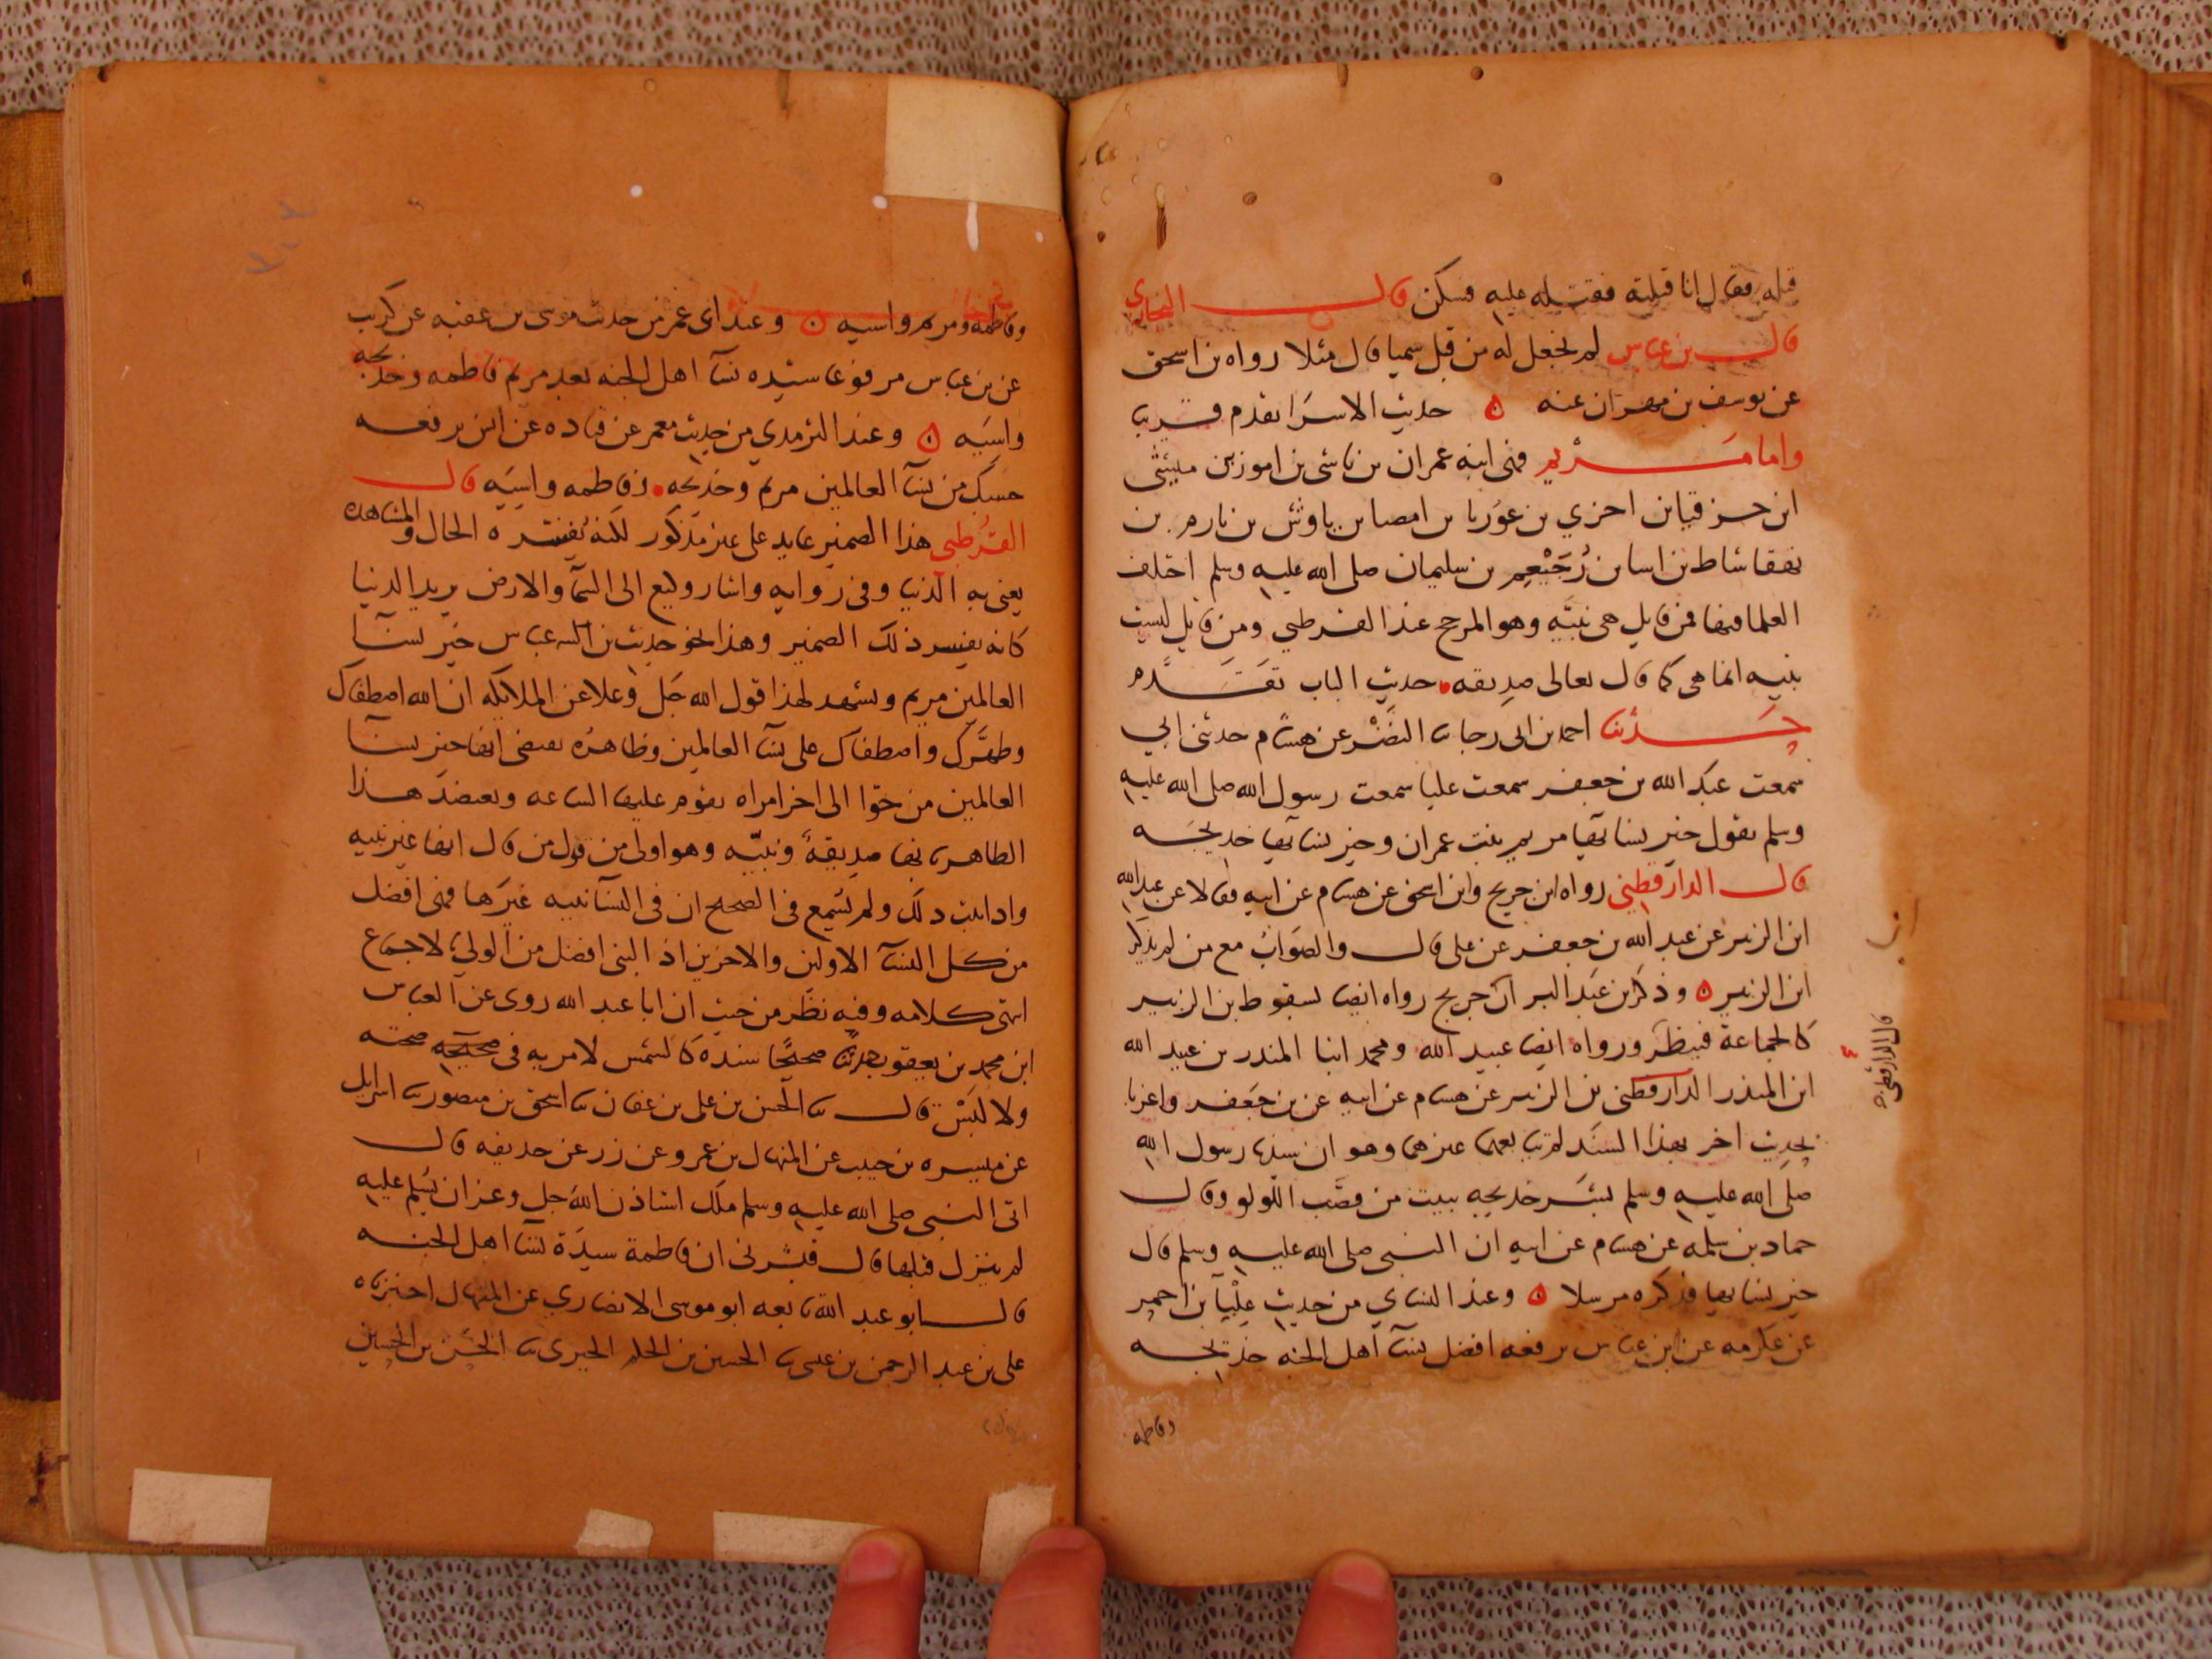 قتله فقال انا قتلته فقتيله عليه فسكن قال البخاري
قال بن عباس لم نجعل له من قبل سميا قال مثلا رواه بن اسحق
عن يوسف بن مهران عنه ن حديث الاسرا تقدم قريب
واما مريم فهي ابنه عمران بن ناشى بن اموز بن ميشى
ابن حزقيا بن احزي بن عوزيا بن امصيا بن ياوش بن نارم بن
نفقا شاط بن اسا بن رجيعم بن سليمان صلى الله عليه وسلم اختلف
العلما فيها فمن قايل هي نبيه وهو المرجح عند القرطبي ومن قايل ليست
بنبيه انما هي كما قال تعالى صديقه حديث الباب تقدم
حدثنا احمد بن ابي رجا ثنا النضر عن هشام حدثني ابي
سمعت عبد الله بن جعفر سمعت عليا سمعت رسول الله صلى الله عليه
وسلم يقول خير نسائها مريم بنت عمران وخير نسائها خديجه
قال الدارقطني رواه ابن جريج وابن اسحق عن هشام عن ابيه فقالا عن عبد الله
ابن الزبير عن عبد الله بن جعفر عن علي قال والصواب مع من لم يذكر
ابن الزبير ن وذكر بن عبد البر ان جريج رواه ايضا بسقوط بن الزبير
كالجماعة فينظر ورواه ايضا عبيد الله ومحمد ابنا المنذر بن عبيد الله
ابن المنذر الدارقطني بن الزبير عن هشام عن ابيه عن بن جعفر واغربا
بحديث اخر بهذا السند لم يات بهما غيرهما وهو ان رسول الله
صلى الله عليه وسلم بشر خديجه ببيت من قصب اللولو وقال
حماد بن سلمه عن هشام عن ابيه ان النبي صلى الله عليه وسلم قال
خير نسائها فذكره مرسلا ن وعند النساي من حديث علبا بن احمر
عن عكرمه عن ابن عباس يرفعه افضل نسا اهل الجنه خديجه
وفاطمه
قال الدارقطني
وفاطمه ومريم واسيه ن وعند ابي عمر من حديث موسى بن عقبه عن كريب
عن بن عباس مرفوعا سيده نسا اهل الجنه بعد مريم فاطمه وخديجه
واسيه ن وعند الترمذي من حديث معمر عن قتاده عن انس يرفعه
حسبك من نسا العالمين مريم وخديجه وفاطمه واسيه قال
القرطبي هذا الضمير عايد على غير مذكور لكنه يفسره الحال والمشاهده
يعني به الدنيا وفي روايه واشار وكيع الى السما والارض يريد الدنيا
كانه يفسر ذلك الضمير وهذا نحو حديث بن عباس خير نسا
العالمين مريم ويشهد لهذا قول الله جل وعلا عن الملايكه ان الله اصطفاك
وطهرك واصطفاك على نسا العالمين وظاهره يقتضي انها خير نسا
العالمين من حوا الى اخر امراه تقوم عليها الساعه ويعضد هذا
الظاهر انها صديقة ونبيه وهو اولى من قول من قال انها غير نبيه
واذا ثبت ذلك ولم يسمع في الصحيح ان في النسا نبيه غيرها فهي افضل
من كل النسا الاولين والاخرين اذ النبي افضل من الولي لاجماع
انتهى كلامه وفيه نظر من حيث ان ابا عبد الله روى عن ابي العباس
ابن محمد بن يعقوب حديثا صحيحا سنده كالشمس لا مريه في صحيحه صحته
ولا لبس قال ثنا الحسن بن علي بن عفان ثنا اسحق بن منصور ثنا اسرايل
عن ميسره بن حبيب عن المنهال بن عمرو عن زر عن حذيفه قال
اتى النبي صلى الله عليه وسلم ملك استاذن الله جل وعز ان يسلم عليه
لم ينزل قبلها قال فبشرني ان فاطمة سيدة نسا اهل الجنه
قال ابو عبد الله تابعه ابو موسى الانصاري عن المنهال اخبرناه
علي بن عبد الرحمن بن عيسى ثنا الحسين بن الحكم الحبري ثنا الحسن بن الحسين